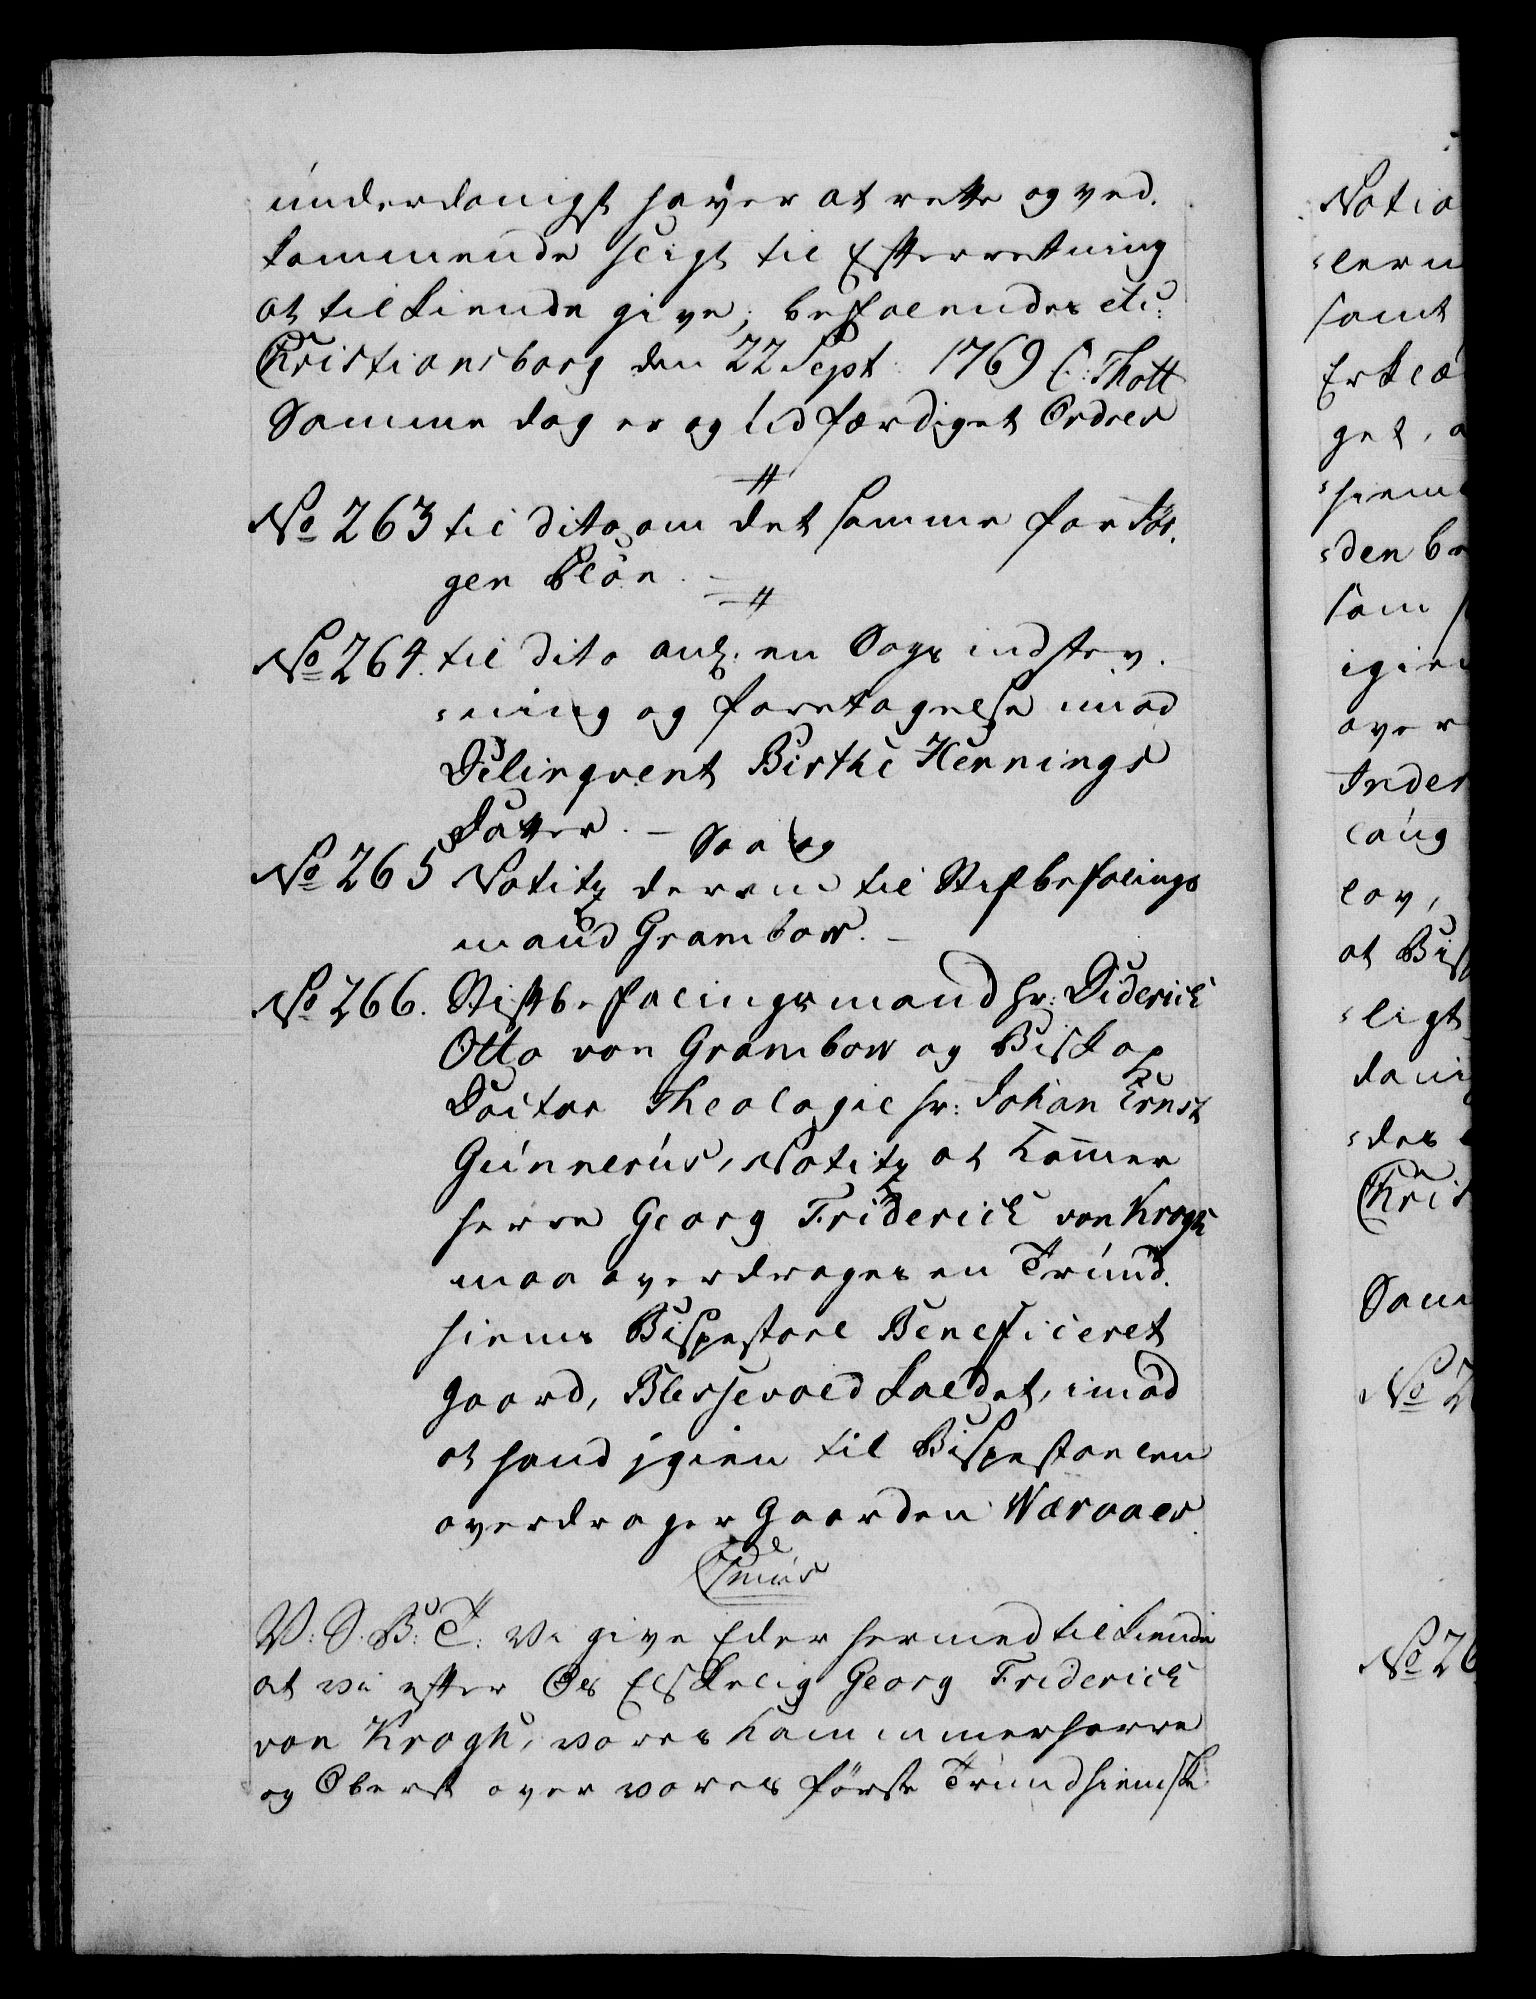 underdanigst haver at rette og ved-
kommende sligt til Efterretning
at tilkiende give; befalendes etc:
Christiansborg den 22 Sept: 1769 O: Thott
Samme dag er og udfærdiget Ordres
No 263 til dito om det samme for Jör-
gen Blön. -
No 264. til dito anl: en Sags indstev-
-ning og foretagelse imod
Delinqvent Birthe Hennings
Datter. - Saa og
No 265 Notitz derom til Stiftbefalings
mand Grambow. -
No 266. Stiftbefalingsmand hr: Diderich
Otto von Grambow og Biskop
Doctor Theologie hr: Johan Ernst
Gunnerus, Notitz at Kammer
herre Georg Friderich von Krogh
maa overdrages en Trund-
hiems Bispestoel Beneficeret
gaard, Blessevold kaldet, imod
at hand igien til Bispestoelen
overdrager Gaarden Wæraaes.
V. S. B: T: Vi give Eder hermed tilkiende
at vi efter Os Elskelig Georg Friderich
von Krogh, vores Kammerherre
og Oberst over vores förste Trundhiemske
Notia
-lern
samt
Erklæ
get, a
-hiem
-den be
som
igien
over
Inder
laug
lov,
at Bis
-ligt
dani
-des
Chris
Sam
No 2
No 26